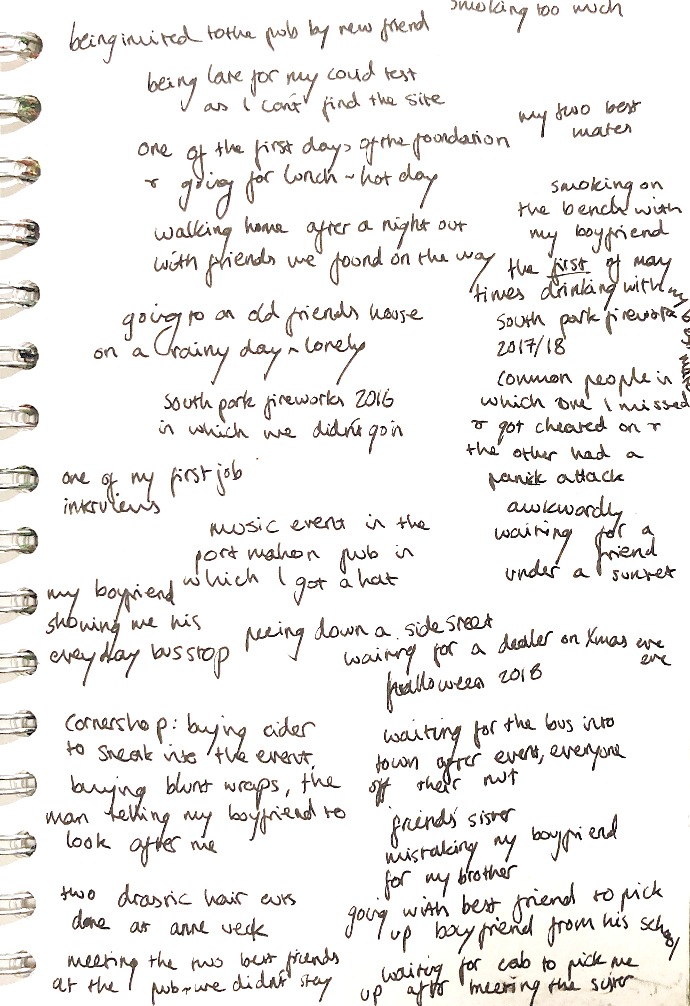 smoking too much
being invited to the pub by new friend
being late for my covid test
as I can't find the site
my two best
mates
one of the first days of the foundation
& going for lunch ~ hot day
smoking on
the bench with
my boyfriend
walking home after a night out
with friends we found on the way
the first of many
times drinking with my
going to an old friends house
on a rainy day ~ lonely
south park fireworks
2017/18
south park fireworks 2016
in which we didn't go in
common people in
which one I missed
& got cheated on &
the other had a
panick attack
one of my first job
interviews
music event in the
port mahon pub in
which I got a hat
awkwardly
waiting for a
friend
under a sunset
my boyfriend
showing me his
everyday bus stop
peeing down a side street
waiting for a dealer on Xmas eve
eve
halloween 2018
cornershop: buying cider
to sneak into the event,
buying blunt wraps, the
man telling my boyfriend to
look after me
waiting for the bus into
town after event, everyone
off their nut
friends sister
mistaking my boyfriend
for my brother
two drastic hair cuts
done at anne veck
going with best friend to pick
up boyfriend from his school
meeting the two best friends
at the pub & we didn't stay
waiting for cab to pick me
up after meeting the sister